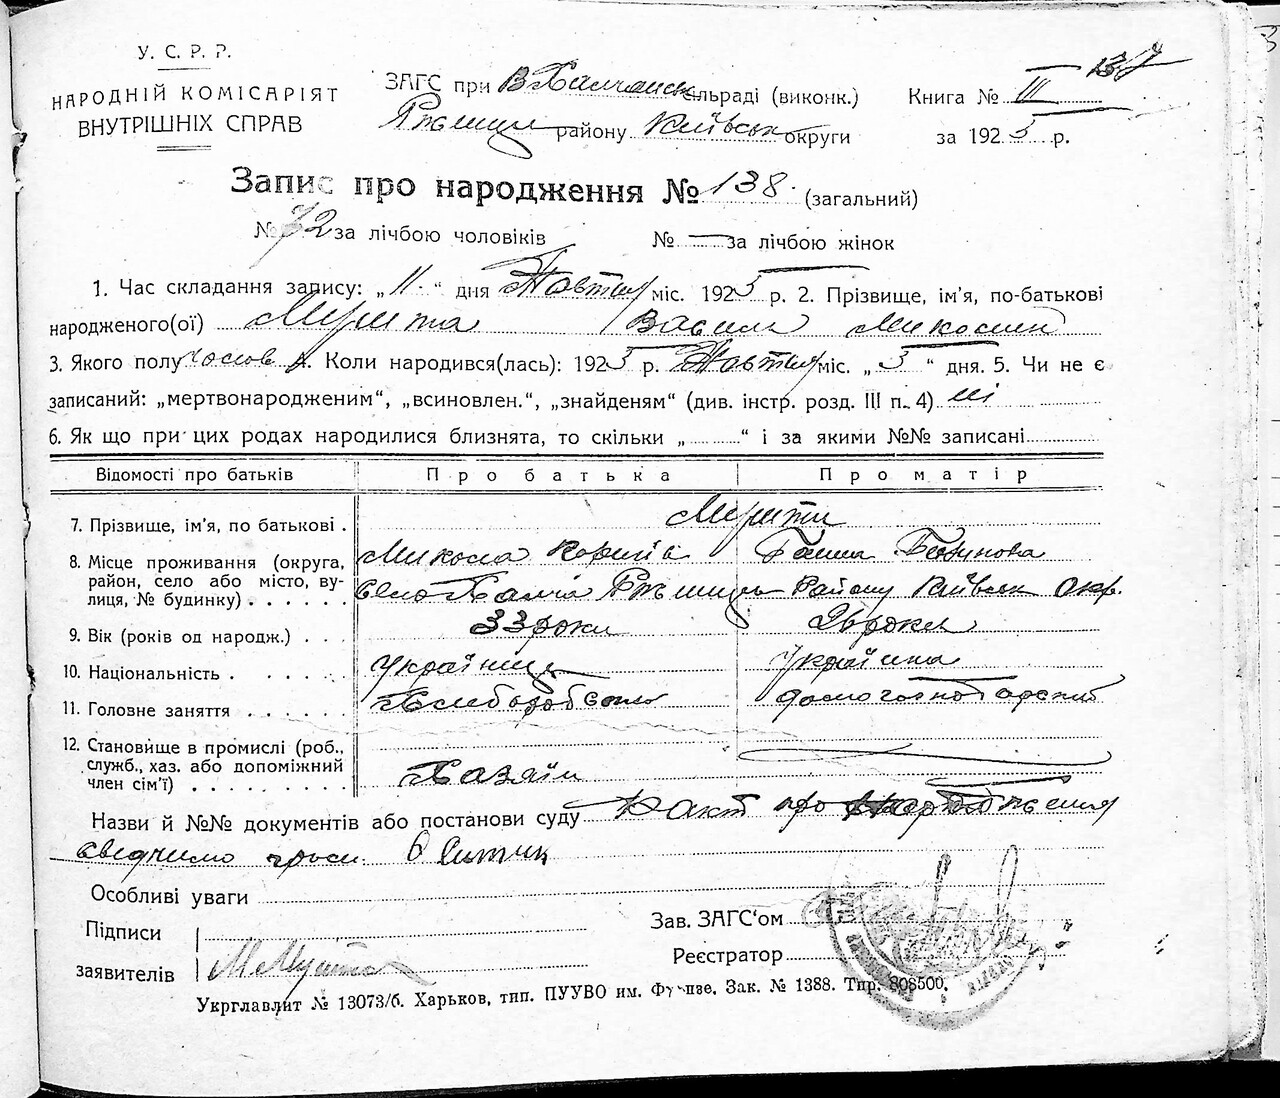 У. С. Р. Р.
НАРОДНІЙ КОМІСАРІЯТ
ВНУТРІШНІХ СПРАВ
ЗАГС при В Халчанск сільраді (виконк.)
Ржищ району Київськ округи
Книга № III 137
за 1925 р.
Запис про народження № 138. (загальний)
№ 72 за лічбою чоловіків № — за лічбою жінок
1. Час складання запису: „11" дня Жовтня міс. 1925 р. 2. Прізвище, ім'я, по-батькові
народженого(ої) Василь Микол
3. Якого полу чолов 4. Коли народився(лась): 1925 р. Жовтня міс. „3" дня. 5. Чи не є
записаний: „мертвонародженим", „всиновлен.", „знайденям" (див. інстр. розд. III п. 4) ні
6. Як що при цих родах народилися близнята, то скільки „ " і за якими №№ записані
Відомості про батьків Про батька Про матір
7. Прізвище, ім'я, по батькові .
Микола Ганна
8. Місце проживання (округа, район, село або місто, вулиця, № будинку) село Району Київськ окр.
9. Вік (років од народж.) 33 роки 26 роки
10. Національність українець україна
11. Головне заняття Хлиборобство
12. Становище в промислі (роб., служб., хаз. або допоміжний член сім'ї) Хазяїн
Назви й №№ документів або постанови суду Факт про народження
свідчимо
Особливі уваги
Підписи
заявителів
Зав. ЗАГС'ом
Реєстратор
Укрглавліт № 13073/б. Харьков, тип. ПУУВО им. Фрунзе. Зак. № 1388. Тир. 808500.